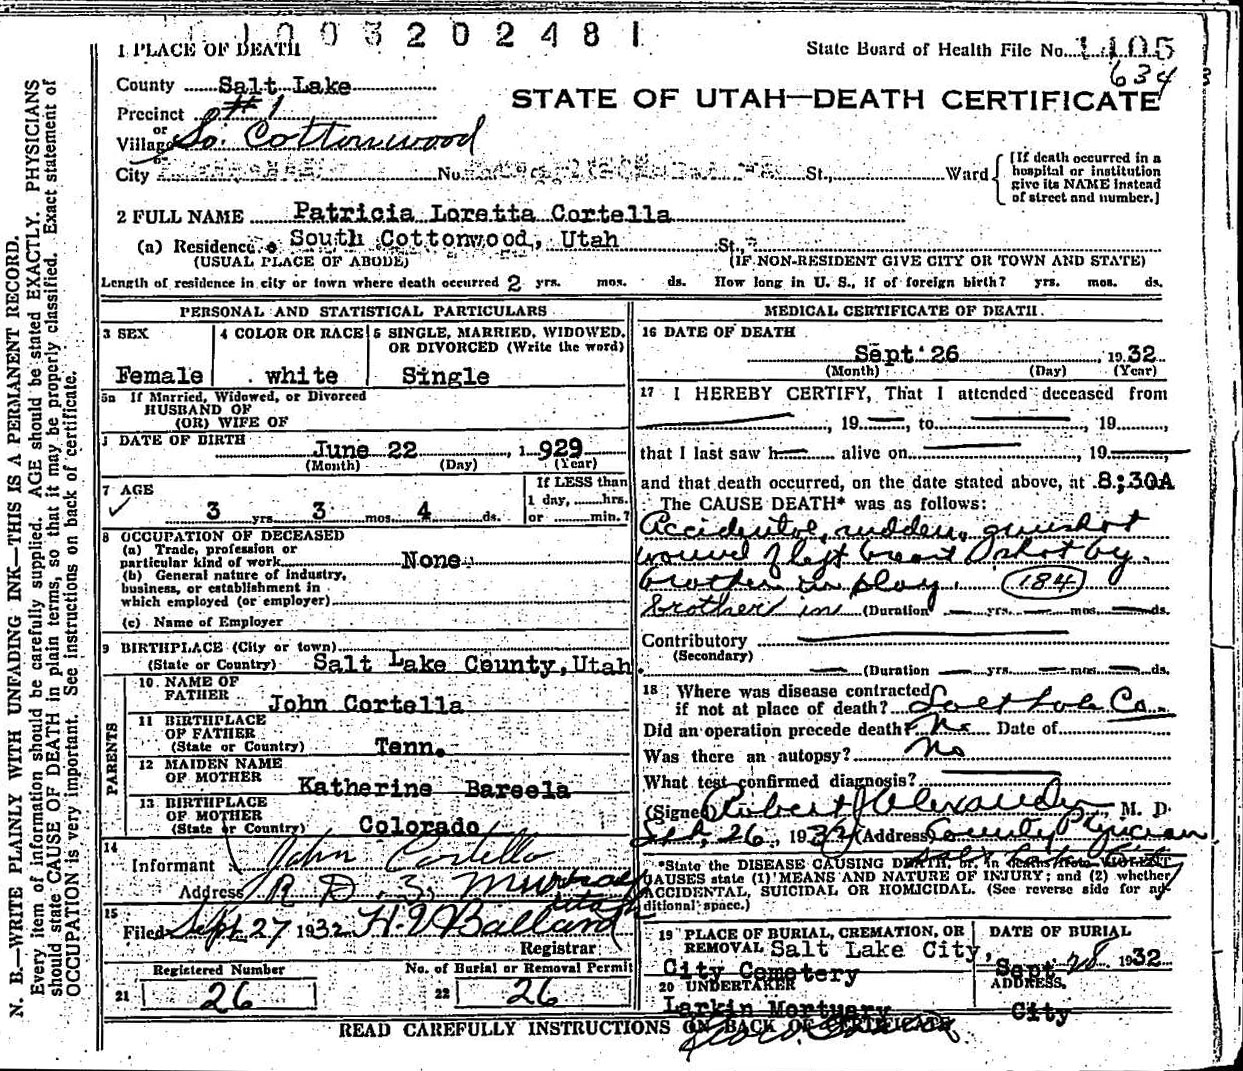 1003202481
1 PLACE OF DEATH
State Board of Health File No. 1105
634
County Salt Lake
STATE OF UTAH—DEATH CERTIFICATE
Precinct #1
or
Village So. Cottonwood
or
City No. St., Ward
[If death occurred in a
hospital or institution
give its NAME instead
of street and number.]
2 FULL NAME Patricia Loretta Cortella
(a) Residence. South Cottonwood, Utah St.,
(USUAL PLACE OF ABODE) (IF NON-RESIDENT GIVE CITY OR TOWN AND STATE)
Length of residence in city or town where death occurred 2 yrs. mos. ds. How long in U. S., if of foreign birth? yrs. mos. ds.
PERSONAL AND STATISTICAL PARTICULARS
3 SEX
Female
4 COLOR OR RACE
white
5 SINGLE, MARRIED, WIDOWED,
OR DIVORCED (Write the word)
Single
5a If Married, Widowed, or Divorced
HUSBAND OF
(OR) WIFE OF
DATE OF BIRTH
June 22, 1929
(Month) (Day) (Year)
7 AGE
3 yrs. 3 mos. 4 ds.
If LESS than
1 day, hrs.
or min.?
8 OCCUPATION OF DECEASED
(a) Trade, profession or
particular kind of work None
(b) General nature of industry,
business, or establishment in
which employed (or employer)
(c) Name of Employer
9 BIRTHPLACE (City or town)
(State or Country) Salt Lake County, Utah.
PARENTS
10. NAME OF
FATHER
John Cortella
11 BIRTHPLACE
OF FATHER
(State or Country) Tenn.
12 MAIDEN NAME
OF MOTHER
Katherine Bareela
13 BIRTHPLACE
OF MOTHER
(State or Country) Colorado
14
Informant John Cortello
Address R D. 3, Murray
Utah
15
Filed Sept 27 1932 H. Ballard
Registrar
Registered Number
21 26
No. of Burial or Removal Permit
22 26
MEDICAL CERTIFICATE OF DEATH.
16 DATE OF DEATH
Sept 26 1932
(Month) (Day) (Year)
17 I HEREBY CERTIFY, That I attended deceased from
, 19 , to , 19 ,
that I last saw h alive on , 19 ,
and that death occurred, on the date stated above, at 8:30A
The CAUSE DEATH* was as follows:
Accidental, sudden, gunshot
wound of left breast shot by
brother in play. 184
brother in (Duration yrs. mos. ds.
Contributory
(Secondary)
(Duration yrs. mos. ds.
18 Where was disease contracted
if not at place of death? Salt Lake Co.
Did an operation precede death? No Date of
Was there an autopsy? No
What test confirmed diagnosis?
(Signed) Robert Alexander, M. D.
Sept, 26, 1932 (Address) County Physician
*State the DISEASE CAUSING DEATH, or, in deaths from VIOLENT
CAUSES state (1) MEANS AND NATURE OF INJURY; and (2) whether
ACCIDENTAL, SUICIDAL OR HOMICIDAL. (See reverse side for ad-
ditional space.)
19 PLACE OF BURIAL, CREMATION, OR
REMOVAL Salt Lake City,
City Cemetery
DATE OF BURIAL
Sept 28 1932
20 UNDERTAKER
Larkin Mortuary
ADDRESS.
City
READ CAREFULLY INSTRUCTIONS ON BACK OF CERTIFICATE
N. B.—WRITE PLAINLY WITH UNFADING INK—THIS IS A PERMANENT RECORD.
Every item of information should be carefully supplied. AGE should be stated EXACTLY. PHYSICIANS
should state CAUSE OF DEATH in plain terms, so that it may be properly classified. Exact statement of
OCCUPATION is very important. See instructions on back of certificate.